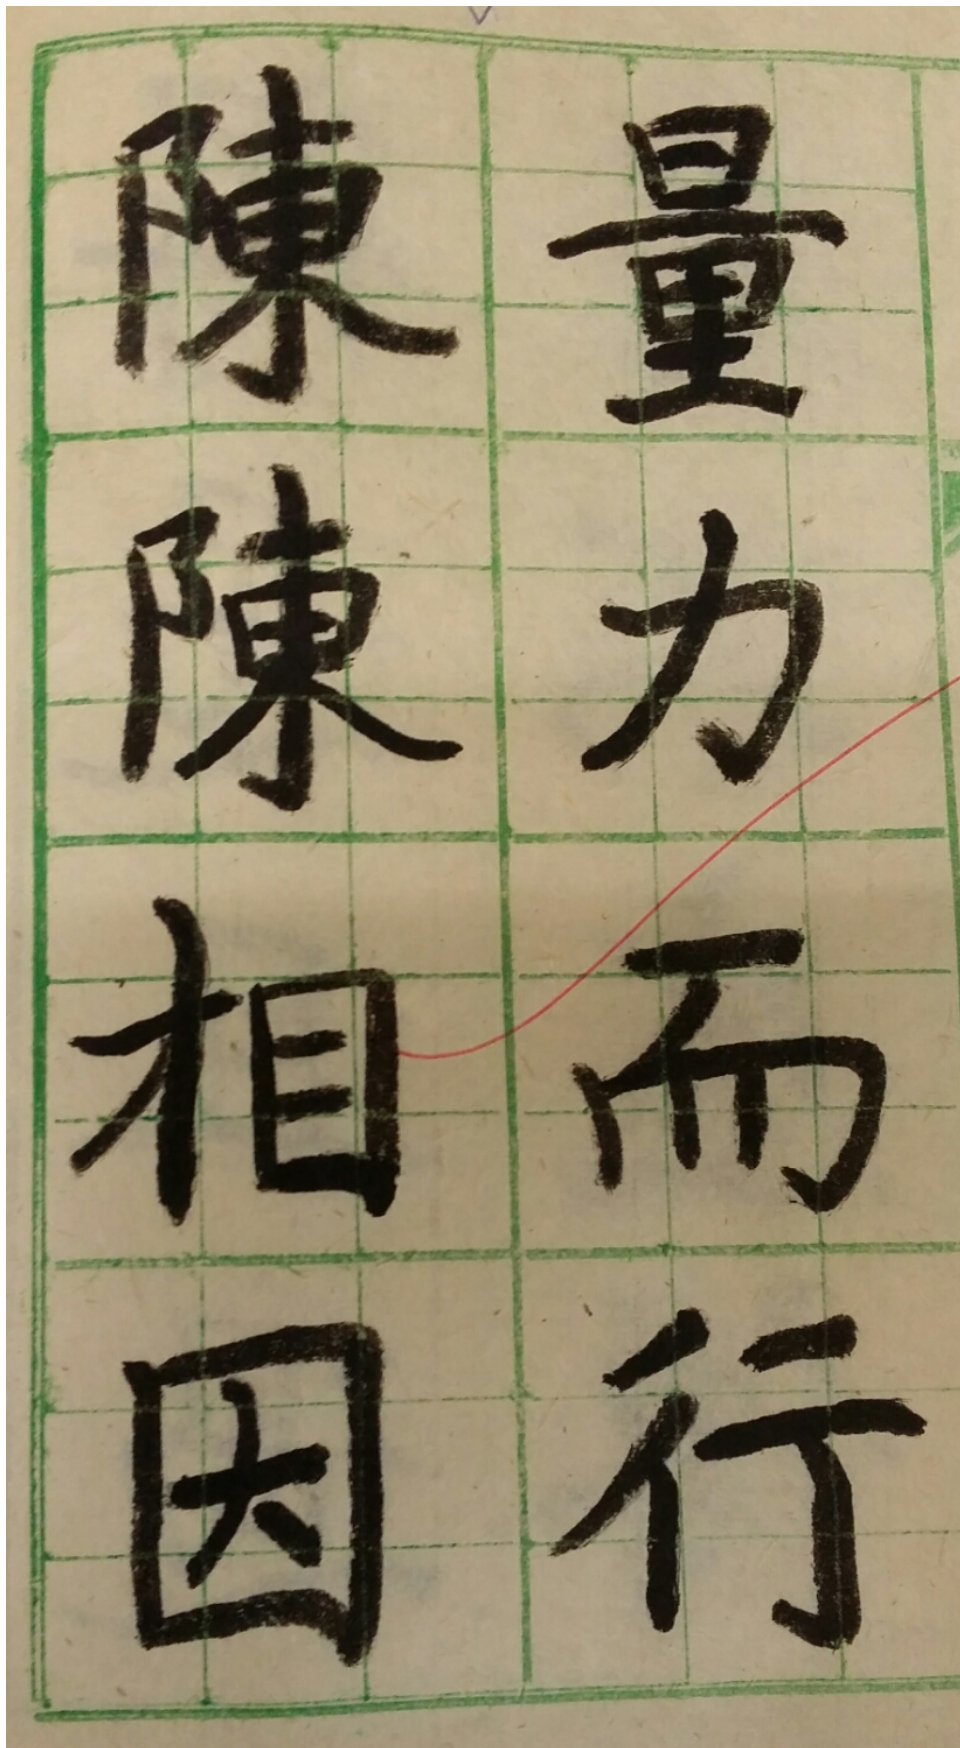 量力而行
陳陳相因